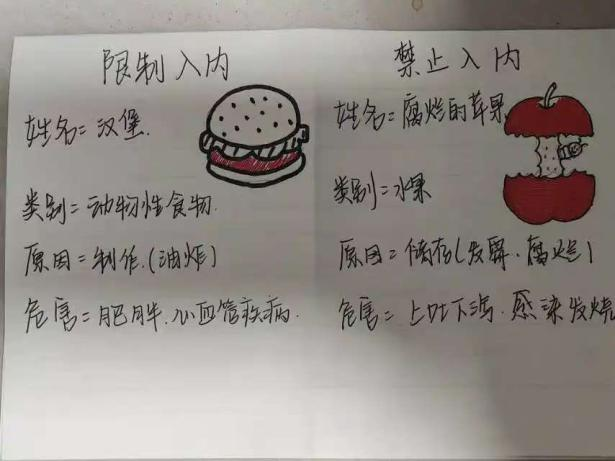 限制入内
姓名=汉堡.
类别=动物性食物.
原因=制作.(油炸)
危害=肥胖.心血管疾病.
禁止入内
姓名=腐烂的苹果
类别=水果
原因=储存(发霉.腐烂)
危害=上吐下泻.感染发烧